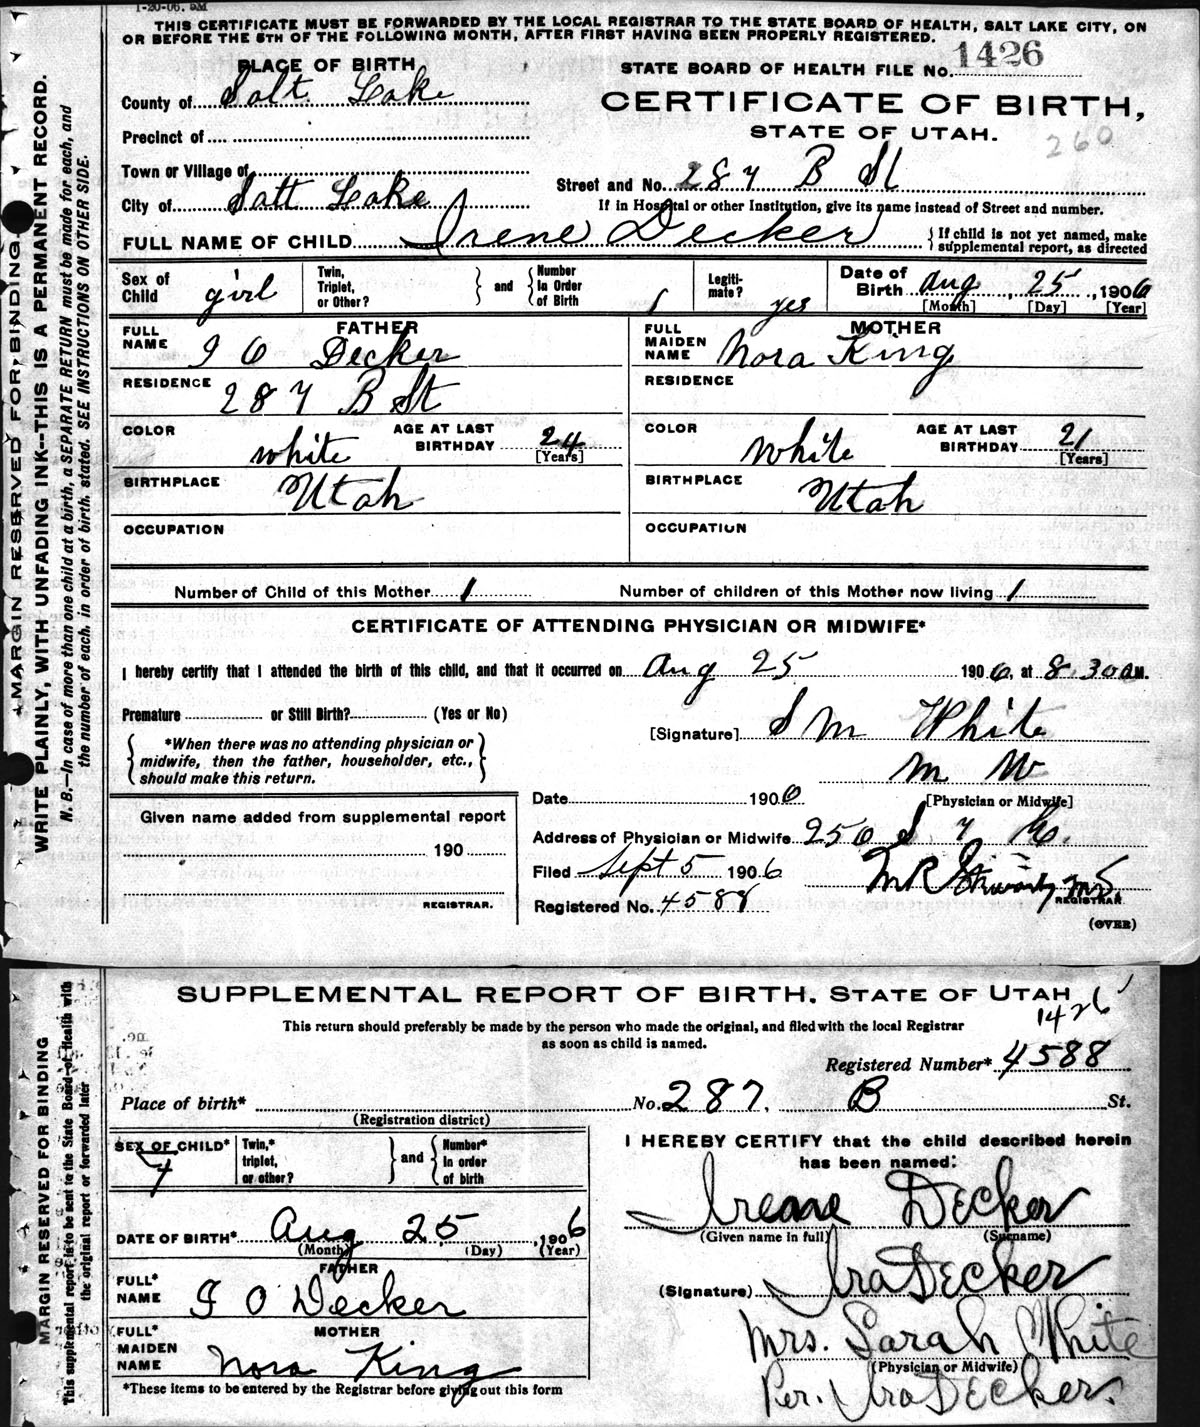 1-20-06. 5M
THIS CERTIFICATE MUST BE FORWARDED BY THE LOCAL REGISTRAR TO THE STATE BOARD OF HEALTH, SALT LAKE CITY, ON
OR BEFORE THE 5TH OF THE FOLLOWING MONTH, AFTER FIRST HAVING BEEN PROPERLY REGISTERED.
MARGIN RESERVED FOR BINDING
WRITE PLAINLY, WITH UNFADING INK--THIS IS A PERMANENT RECORD.
N. B.--In case of more than one child at a birth, a SEPARATE RETURN must be made for each, and
the number of each, in order of birth, stated. SEE INSTRUCTIONS ON OTHER SIDE.
PLACE OF BIRTH
STATE BOARD OF HEALTH FILE No. 1426
County of Salt Lake
CERTIFICATE OF BIRTH,
Precinct of
STATE OF UTAH.
260
Town or Village of
Street and No. 287 B St
City of Salt Lake
If in Hospital or other Institution, give its name instead of Street and number.
FULL NAME OF CHILD Irene Decker
If child is not yet named, make
supplemental report, as directed
Sex of Child girl
Twin, Triplet, or Other?
and
Number In Order of Birth 1
Legitimate? yes
Date of Birth Aug 25, 1906
[Month] [Day] [Year]
FATHER
FULL NAME I O Decker
MOTHER
FULL MAIDEN NAME Nora King
RESIDENCE 287 B St
RESIDENCE
COLOR white
AGE AT LAST BIRTHDAY 24
[Years]
COLOR White
AGE AT LAST BIRTHDAY 21
[Years]
BIRTHPLACE Utah
BIRTHPLACE Utah
OCCUPATION
OCCUPATION
Number of Child of this Mother 1
Number of children of this Mother now living 1
CERTIFICATE OF ATTENDING PHYSICIAN OR MIDWIFE*
I hereby certify that I attended the birth of this child, and that it occurred on Aug 25 1906, at 8.30 a M.
Premature or Still Birth? (Yes or No)
[Signature] S M White
*When there was no attending physician or
midwife, then the father, householder, etc.,
should make this return.
M W
[Physician or Midwife]
Date 1906
Given name added from supplemental report
190
REGISTRAR.
Address of Physician or Midwife 256 S 7 E.
Filed Sept 5 1906
REGISTRAR.
Registered No. 4588
(OVER)
MARGIN RESERVED FOR BINDING
This supplemental report is to be sent to the State Board of Health with
the original report or forwarded later
SUPPLEMENTAL REPORT OF BIRTH, STATE OF UTAH
1426
This return should preferably be made by the person who made the original, and filed with the local Registrar
as soon as child is named.
Registered Number* 4588
Place of birth*
(Registration district)
No. 287. B St.
SEX OF CHILD*
Twin,* triplet, or other?
and
Number* in order of birth
I HEREBY CERTIFY that the child described herein
has been named:
Irene Decker
(Given name in full) (Surname)
DATE OF BIRTH* Aug 25, 1906
(Month) (Day) (Year)
FATHER
FULL* NAME I O Decker
(Signature) Ira Decker
MOTHER
FULL* MAIDEN NAME Nora King
Mrs. Sarah White
(Physician or Midwife)
Per. Ira Decker.
*These items to be entered by the Registrar before giving out this form